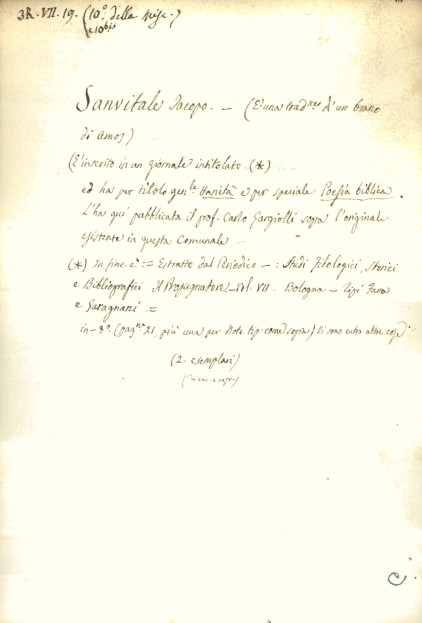 3R. VII. 19. (10.° della Misc.)
e 10 bis
Sanvitale Jacopo. — (È una trad.ne d'un brano
di Amos)
(È inserito in un giornale intitolato (*)
ed ha per titolo gen.le Varietà e per speciale Poesia biblica.
L'ha qui pubblicata il prof. Carlo Gargiolli sopra l'original
esistente in questa Comunale
(*) In fine è := Estratto dal Periodico — : Studi filologici, storici
e Bibliografici Il Propugnatore, Vol. VII. Bologna — Tipi Fava
e Garagnani =
in-8.° (pag.ne 21, più una per Note tip. come sopra) Vi sono entro altre
(2. esemplari)